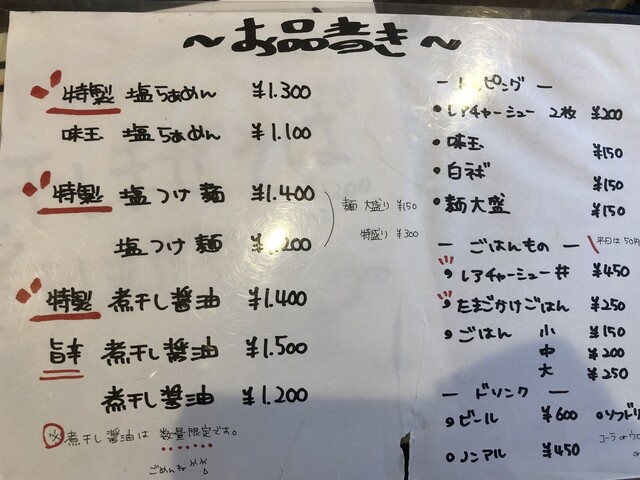 ～お品書き～
特製 塩らぁめん ¥1.300
味玉 塩らぁめん ¥1.100
特製 塩つけ麺 ¥1.400
塩つけ麺 ¥1.200
麺 大盛り ¥150
特盛り ¥300
特製 煮干し醤油 ¥1.400
旨辛 煮干し醤油 ¥1.500
煮干し醤油 ¥1.200
※煮干し醤油は 数量限定です。
ごめんね
ー トッピング ー
レアチャーシュー 2枚 ¥200
味玉 ¥150
白ネギ ¥150
麺大盛 ¥150
ー ごはんもの ー
平日は50円
レアチャーシュー丼 ¥450
たまごかけごはん ¥250
ごはん 小 ¥150
中 ¥200
大 ¥250
ー ドリンク ー
ビール ¥600
ソフトドリ
コーラ or ウロ
ノンアル ¥450